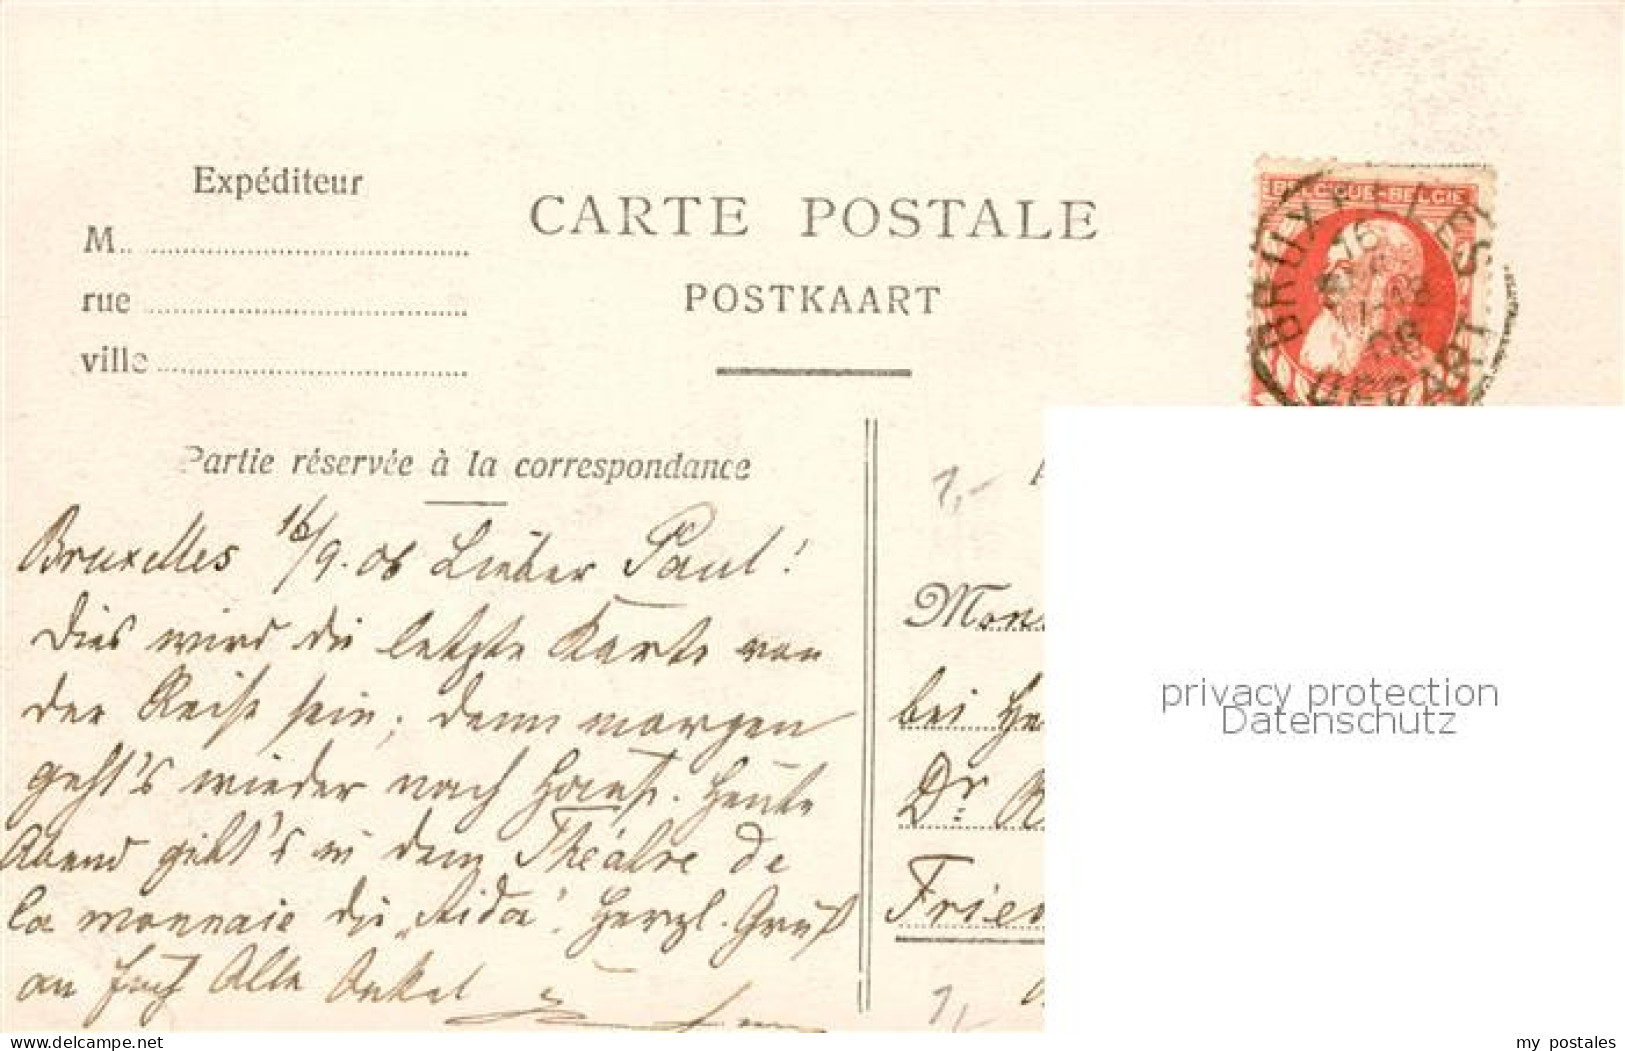 Expéditeur
M
rue
ville
CARTE POSTALE
POSTKAART
BELGIQUE-BELGIE
BRUXELLES
16
08
DEPART
Partie réservée à la correspondance
Bruxelles 16/9.08 Lieber Paul!
Dies wird die letzte Karte von
der Reise sein; denn morgen
geht's wieder nach Haus. Heute
Abend geht's in dem Théâtre de
la monnaie die „Aida“. Herzl. Gruß
an Euch Alle Onkel
1,-
Mons
bei He
Dr. R
Fried
1,-
privacy protection
Datenschutz
delcampe.net
my_postales